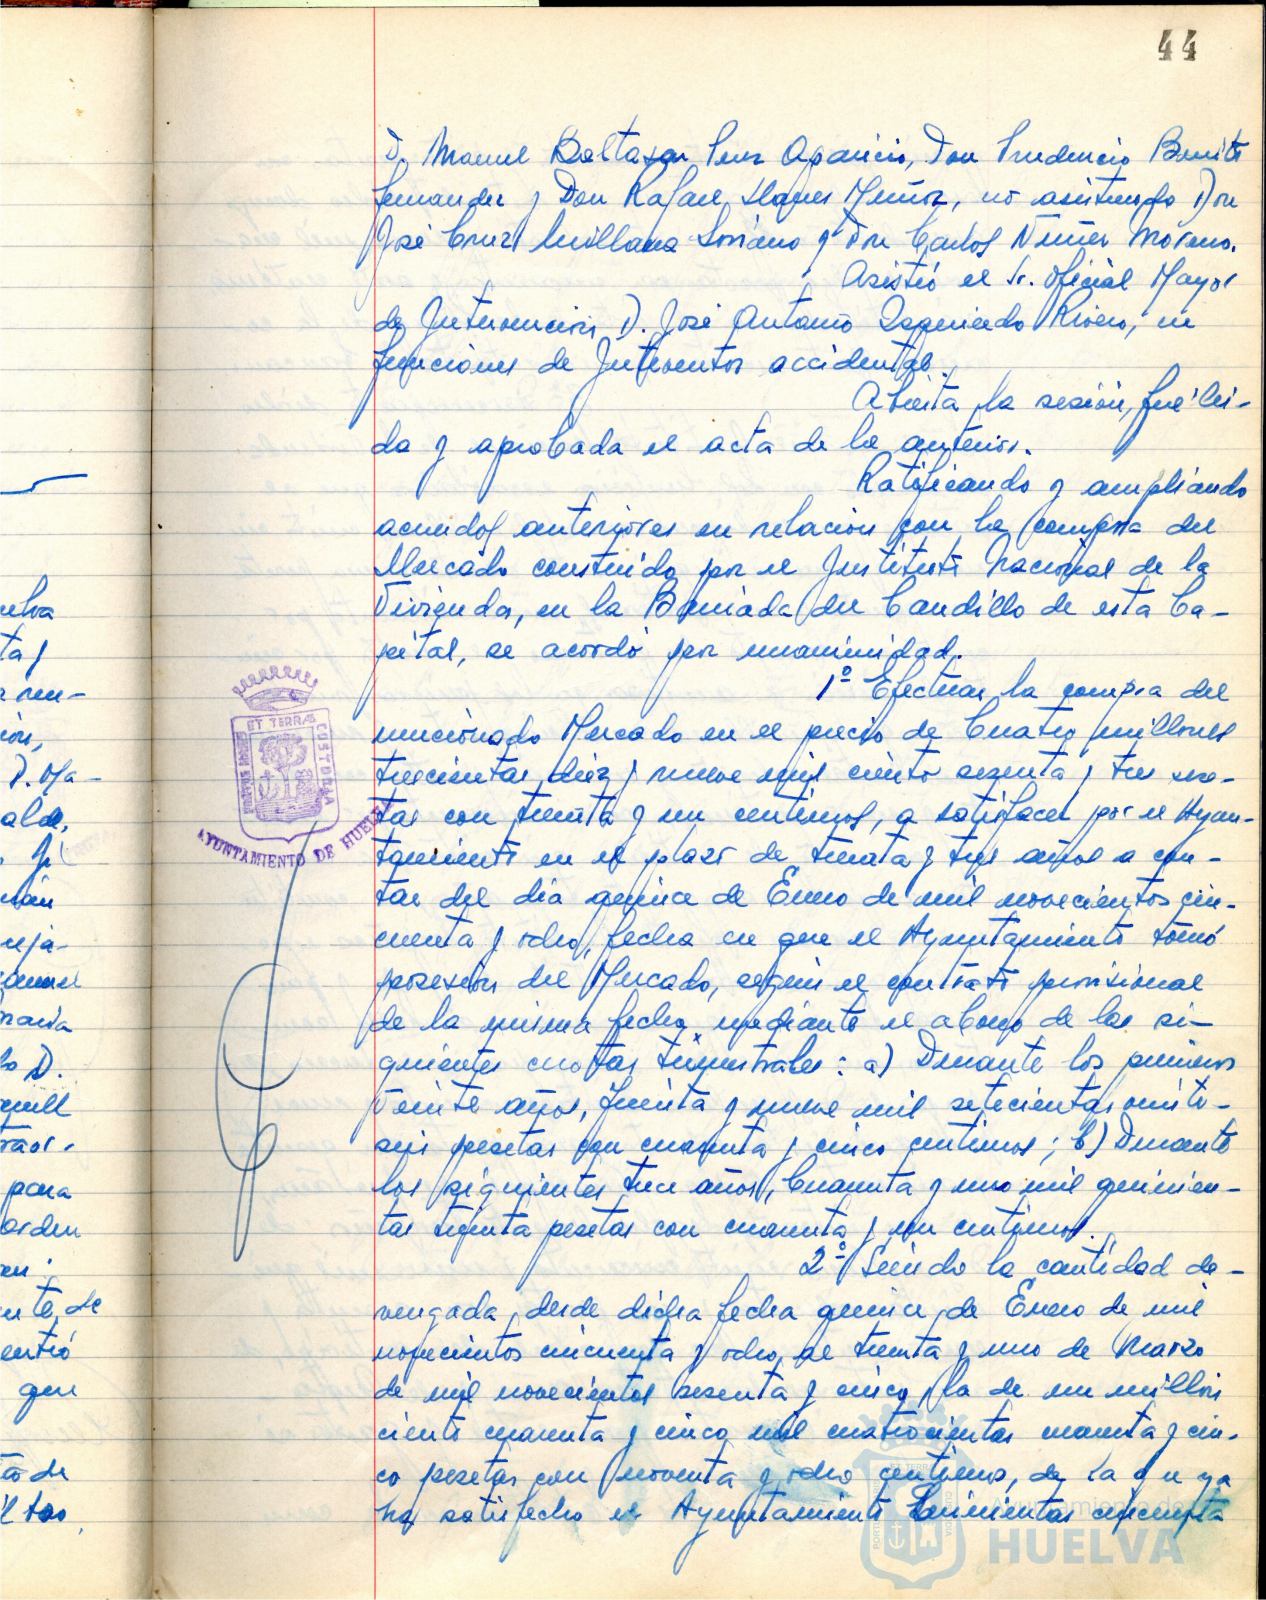 44
D. Manuel Baltasar Perez Aparicio, Don Prudencio Benito
Fernandez y Don Rafael Llanes Muñoz, no asistiendo Don
José Cruz Soriano y Don Carlos Nuñez Moreno.
Asistió el Sr. Oficial Mayor
de Intervencion, D. José Antonio Izquierdo Rivero, en
funciones de Interventor accidental.
Abierta la sesión, fué lei-
da y aprobada el acta de la anterior.
Ratificando y ampliando
acuerdos anteriores en relacion con la compra del
Mercado construido por el Instituto Nacional de la
Vivienda, en la Barriada del Caudillo de esta Ca-
pital, se acordó por unanimidad.
1º Efectuar la compra del
mencionado Mercado en el precio de Cuatro millones
trescientas diez y nueve mil ciento sesenta y tres pese-
tas con treinta y un centimos, a satisfacer por el Ayun-
tamiento en el plazo de treinta y tres años a con-
tar del dia quince de Enero de mil novecientos cin-
cuenta y ocho, fecha en que el Ayuntamiento tomó
posesion del Mercado, según el contrato provisional
de la misma fecha, mediante el abono de las si-
guientes cuotas trimestrales: a) Durante los primeros
veinte años, treinta y nueve mil setecientas veinti-
seis pesetas con cuarenta y cinco centimos; b) Durante
los siguientes trece años, Cuarenta y uno mil quinien-
tas treinta pesetas con cuarenta y un centimos.
2º Siendo la cantidad de-
vengada, desde dicha fecha quince de Enero de mil
novecientos cincuenta y ocho, al treinta y uno de Marzo
de mil novecientos sesenta y cinco, la de un millon
ciento cuarenta y cinco mil cuatrocientas cuarenta y cin-
co pesetas con noventa y ocho centimos, de la que ya
ha satisfecho el Ayuntamiento cincuenta
ET TERRAE
AYUNTAMIENTO DE HUELVA
Ayuntamiento de
HUELVA